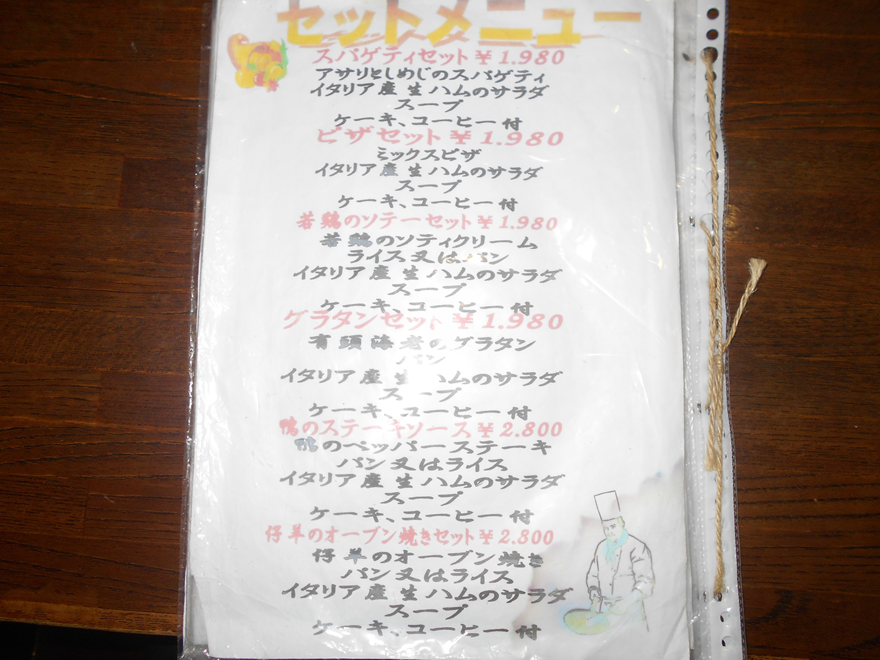 セットメニュー
スパゲティセット ¥1.980
アサリとしめじのスパゲティ
イタリア産生ハムのサラダ
スープ
ケーキ、コーヒー付
ピザセット ¥1.980
ミックスピザ
イタリア産生ハムのサラダ
スープ
ケーキ、コーヒー付
若鶏のソテーセット ¥1.980
若鶏のソティクリーム
ライス又はパン
イタリア産生ハムのサラダ
スープ
ケーキ、コーヒー付
グラタンセット ¥1.980
有頭海老のグラタン
パン
イタリア産生ハムのサラダ
スープ
ケーキ、コーヒー付
鴨のステーキソース ¥2.800
鴨のペッパーステーキ
パン又はライス
イタリア産生ハムのサラダ
スープ
ケーキ、コーヒー付
仔羊のオーブン焼きセット ¥2.800
仔羊のオーブン焼き
パン又はライス
イタリア産生ハムのサラダ
スープ
ケーキ、コーヒー付